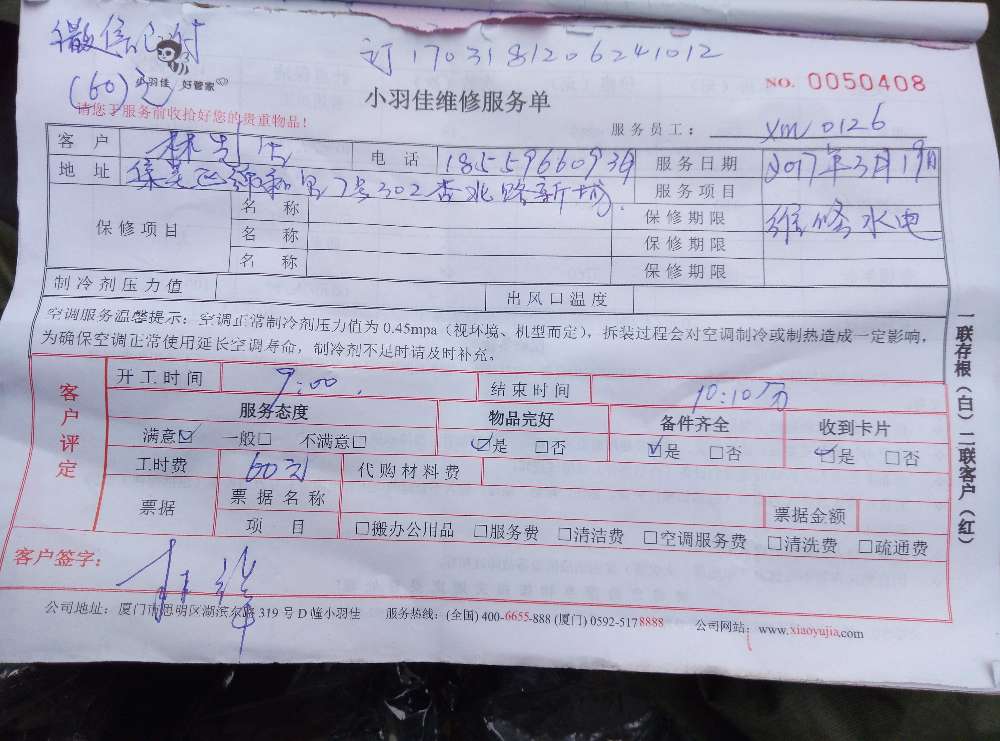 微信已付
订1703181206241012
(60)元
小羽佳 好管家
NO. 0050408
小羽佳维修服务单
请您于服务前收拾好您的贵重物品!
服务员工: xm0126
客户 电话 18559660939 服务日期 2017年3月19日
地址 集美 和里7号302杏北路新城 服务项目 维修水电
保修项目 名称 保修期限
名称 保修期限
名称 保修期限
制冷剂压力值 出风口温度
空调服务温馨提示:空调正常制冷剂压力值为0.45mpa(视环境、机型而定),拆装过程会对空调制冷或制热造成一定影响,
为确保空调正常使用延长空调寿命,制冷剂不足时请及时补充。
客户评定
开工时间 9:00 结束时间 10:10分
服务态度 物品完好 备件齐全 收到卡片
满意☑ 一般□ 不满意□ ☑是 □否 ☑是 □否 ☑是 □否
工时费 60元 代购材料费
票据 票据名称 票据金额
项目 □搬办公用品 □服务费 □清洁费 □空调服务费 □清洗费 □疏通费
客户签字:
公司地址:厦门市思明区湖滨东路319号D幢小羽佳 服务热线:(全国)400-6655-888(厦门)0592-5178888 公司网站:www.xiaoyujia.com
一联存根(白)二联客户(红)